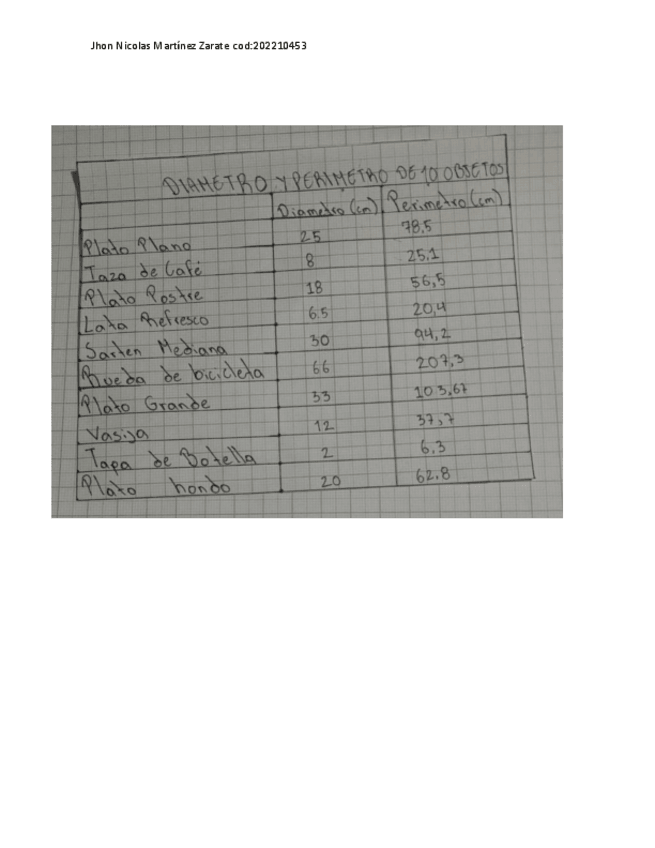 Jhon Nicolas Martínez Zarate cod:202210453
DIAMETRO Y PERIMETRO DE 10 OBJETOS
Diametro (cm) Perimetro (cm)
Plato Plano 25 78,5
Taza de Café 8 25,1
Plato Postre 18 56,5
Lata Refresco 6.5 20,4
Sarten Mediana 30 94,2
Rueda de bicicleta 66 207,3
Plato Grande 33 103,67
Vasija 12 37,7
Tapa de Botella 2 6,3
Plato hondo 20 62,8